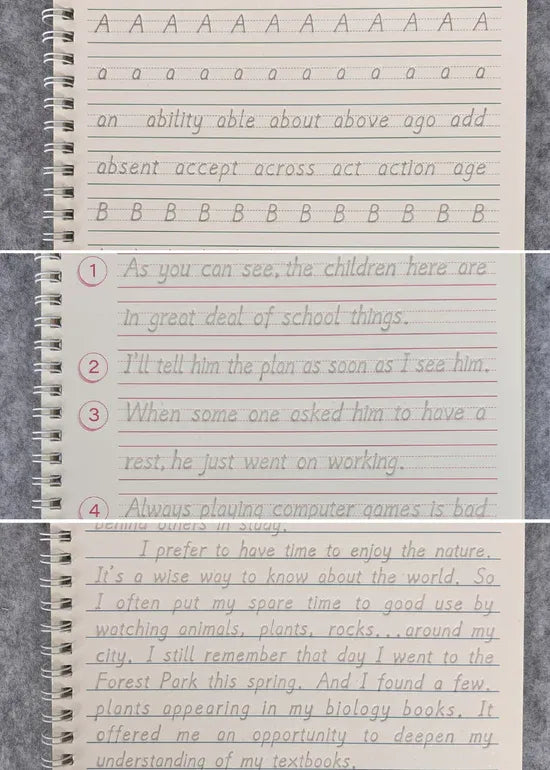 A A A A A A A A A A A A
a a a a a a a a a a a a
an ability able about above ago add
absent accept across act action age
B B B B B B B B B B B B
1 As you can see, the children here are
in great deal of school things.
2 I'll tell him the plan as soon as I see him.
3 When some one asked him to have a
rest, he just went on working.
4 Always playing computer games is bad
behind others in study.
I prefer to have time to enjoy the nature.
It's a wise way to know about the world. So
I often put my spare time to good use by
watching animals, plants, rocks...around my
city. I still remember that day I went to the
Forest Park this spring. And I found a few
plants appearing in my biology books. It
offered me an opportunity to deepen my
understanding of my textbooks.